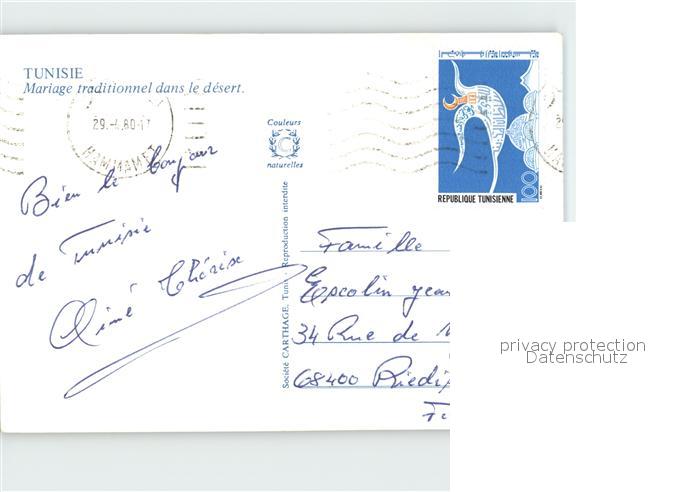 TUNISIE
Mariage traditionnel dans le désert.
29.-4.80-17
HAMMAMET
HAM
Couleurs
C
naturelles
Bien le bonjour
de Tunisie
Aimé Thérèse
Société CARTHAGE, Tunis - Reproduction interdite
100
REPUBLIQUE TUNISIENNE
Famille
Escolin jean
34 Rue de
68400 Riedi
privacy protection
Datenschutz